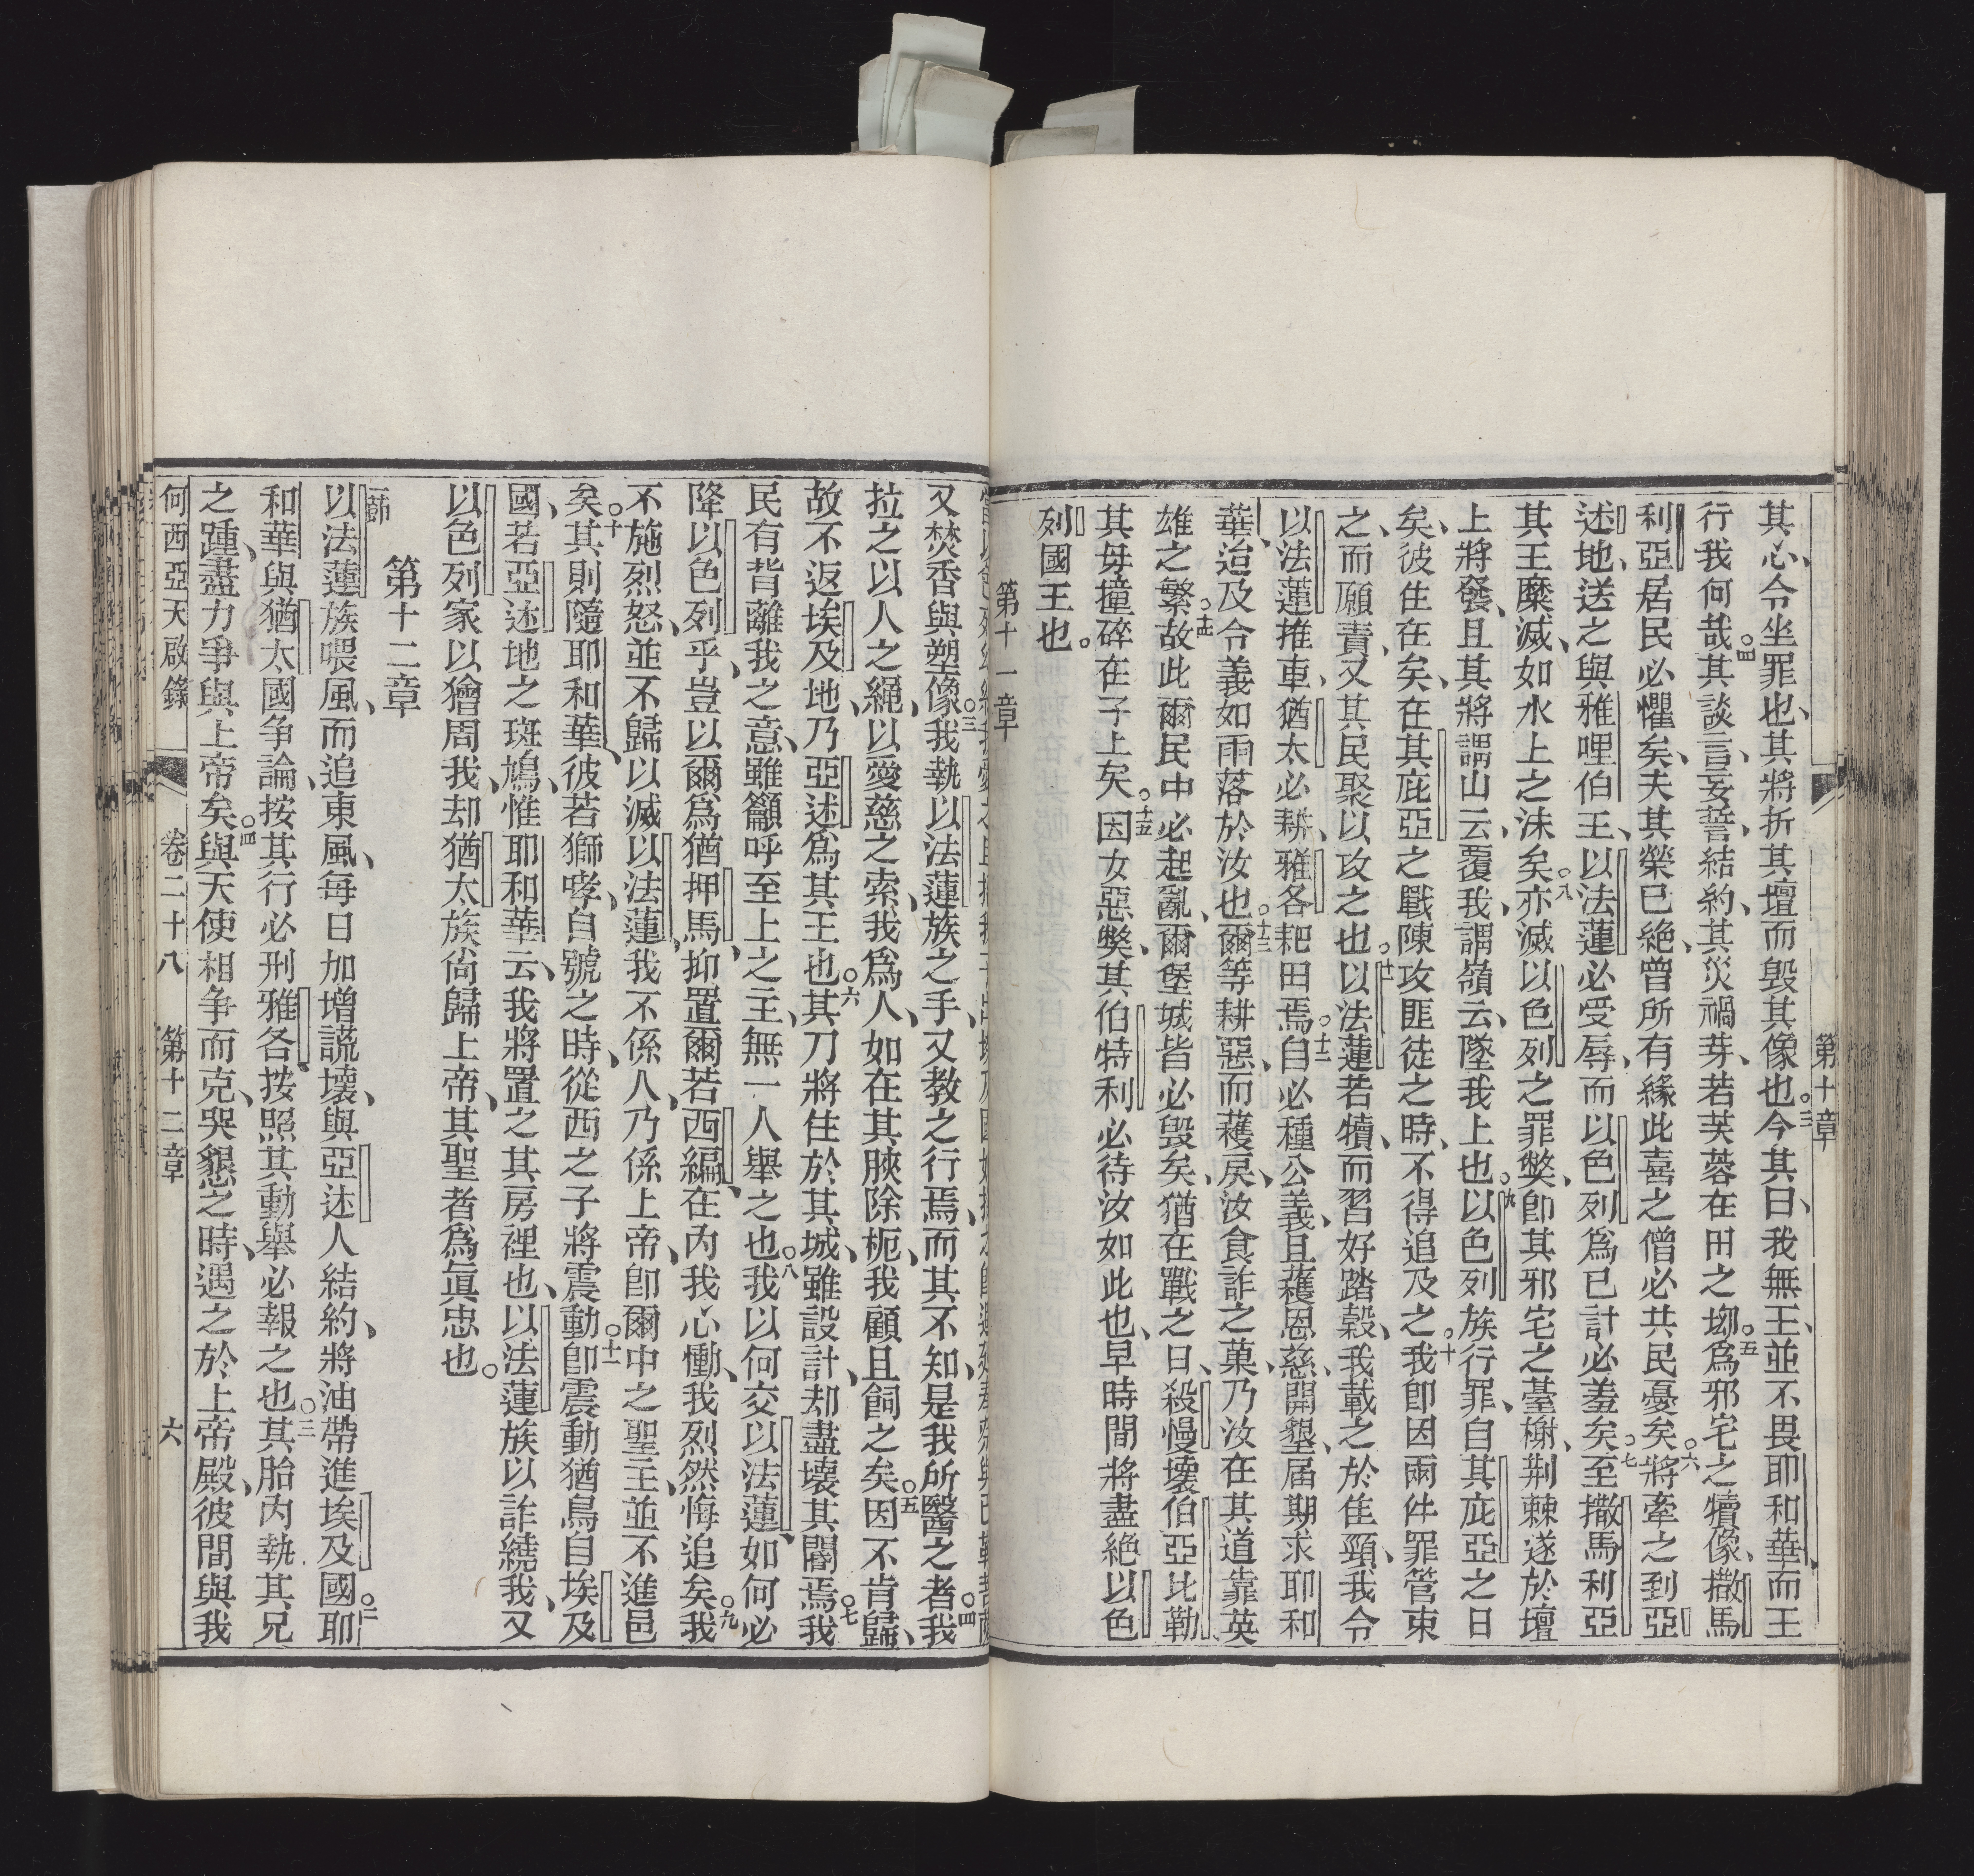 第十章
其心、令坐罪也、其將折其壇而毀其像也。三今其曰、我無王、並不畏耶和華而王
行我何哉。四其談言、妄誓、結約、其災禍芽、若芙蓉在田之坳。五爲邪宅之犢像、撒馬
利亞居民必懼矣、夫其榮已絕、曾所有緣此喜之僧必共民憂矣。六將牽之到亞
述地、送之與雅哩伯王、以法蓮必受辱、而以色列爲已計必羞矣。七至撒馬利亞
其王糜滅、如水上之沫矣。八亦滅以色列之罪獘、卽其邪宅之臺榭、荆棘遂於壇
上將發、且其將謂山云、覆我、謂嶺云、墜我上也。九以色列族行罪、自其庇亞之日
矣、彼住在矣、在其庇亞之戰陳攻匪徒之時、不得追及之。十我卽因兩件罪管束
之、而願責、又其民聚以攻之也。十一以法蓮若犢、而習好踏穀、我載之於佳頸、我令
以法蓮推車、猶太必耕、雅各耙田焉。十二自必種公義、且穫恩慈、開墾、届期求耶和
華、迨及令義如雨落於汝也。十三爾等耕惡、而穫戾、汝食詐之菓、乃汝在其道靠英
雄之繁。十四故此爾民中必起亂、爾堡城皆必毀矣、猶在戰之日、殺慢壞伯亞比勒
其母撞碎在子上矣。十五因女惡獘、其伯特利必待汝如此也、早時間將盡絕以色
列國王也。
第十一章
又焚香與塑像。三我執以法蓮族之手、又教之行焉、而其不知、是我所醫之者。四我
拉之以人之繩、以愛慈之索、我爲人、如在其脥除枙、我顧且飼之矣。五因不肯歸、
故不返埃及地、乃亞述爲其王也。六其刀將住於其城、雖設計、却盡壞其閣焉。七我
民有背離我之意、雖籲呼至上之主、無一人舉之也。八我以何交以法蓮、如何必
降以色列乎、豈以爾爲猶押馬、抑置爾若西編、在內我心慟、我烈然悔追矣。九我
不施烈怒、並不歸以滅以法蓮、我不係人、乃係上帝、卽爾中之聖主、並不進邑
矣。十其則隨耶和華、彼若獅哮、自號之時、從西之子將震動。十一卽震動猶鳥自埃及
國、若亞述地之斑鳩、惟耶和華云、我將置之其房裡也、以法蓮族以詐繞我、又
以色列家以獪周我、却猶太族尙歸上帝、其聖者爲眞忠也。
第十二章
一節
以法蓮族喂風、而追東風、每日加增謊壞、與亞述人結約、將油帶進埃及國。二耶
和華與猶太國争論、按其行必刑雅各、按照其動舉必報之也。三其胎內執其兄
之踵、盡力爭與上帝矣。四與天使相争而克、哭懇之時、遇之於上帝殿、彼間與我
何西亞天啟錄 卷二十八 第十二章 六